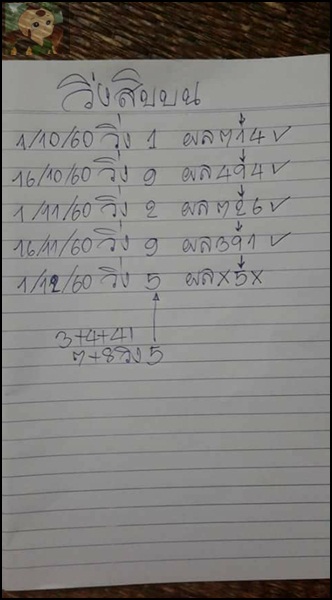 วิ่งสิบบน
1/10/60 วิ่ง 1 ผล714✓
16/10/60 วิ่ง 9 ผล494✓
1/11/60 วิ่ง 2 ผล726✓
16/11/60 วิ่ง 9 ผล391✓
1/12/60 วิ่ง 5 ผลx5x
3+4+41
7+8วิ่ง5